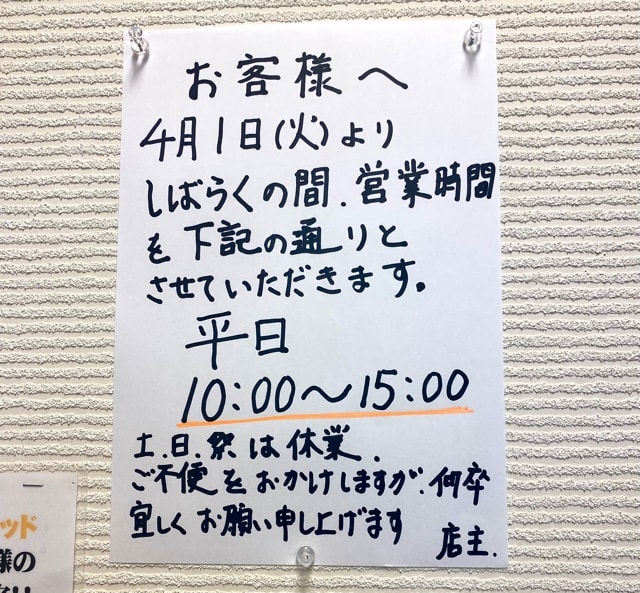 お客様へ
4月1日(火)より
しばらくの間、営業時間
を下記の通りと
させていただきます。
平日
10:00〜15:00
土、日、祭は休業、
ご不便をおかけしますが、何卒
宜しくお願い申し上げます
店主、
ッド
様の